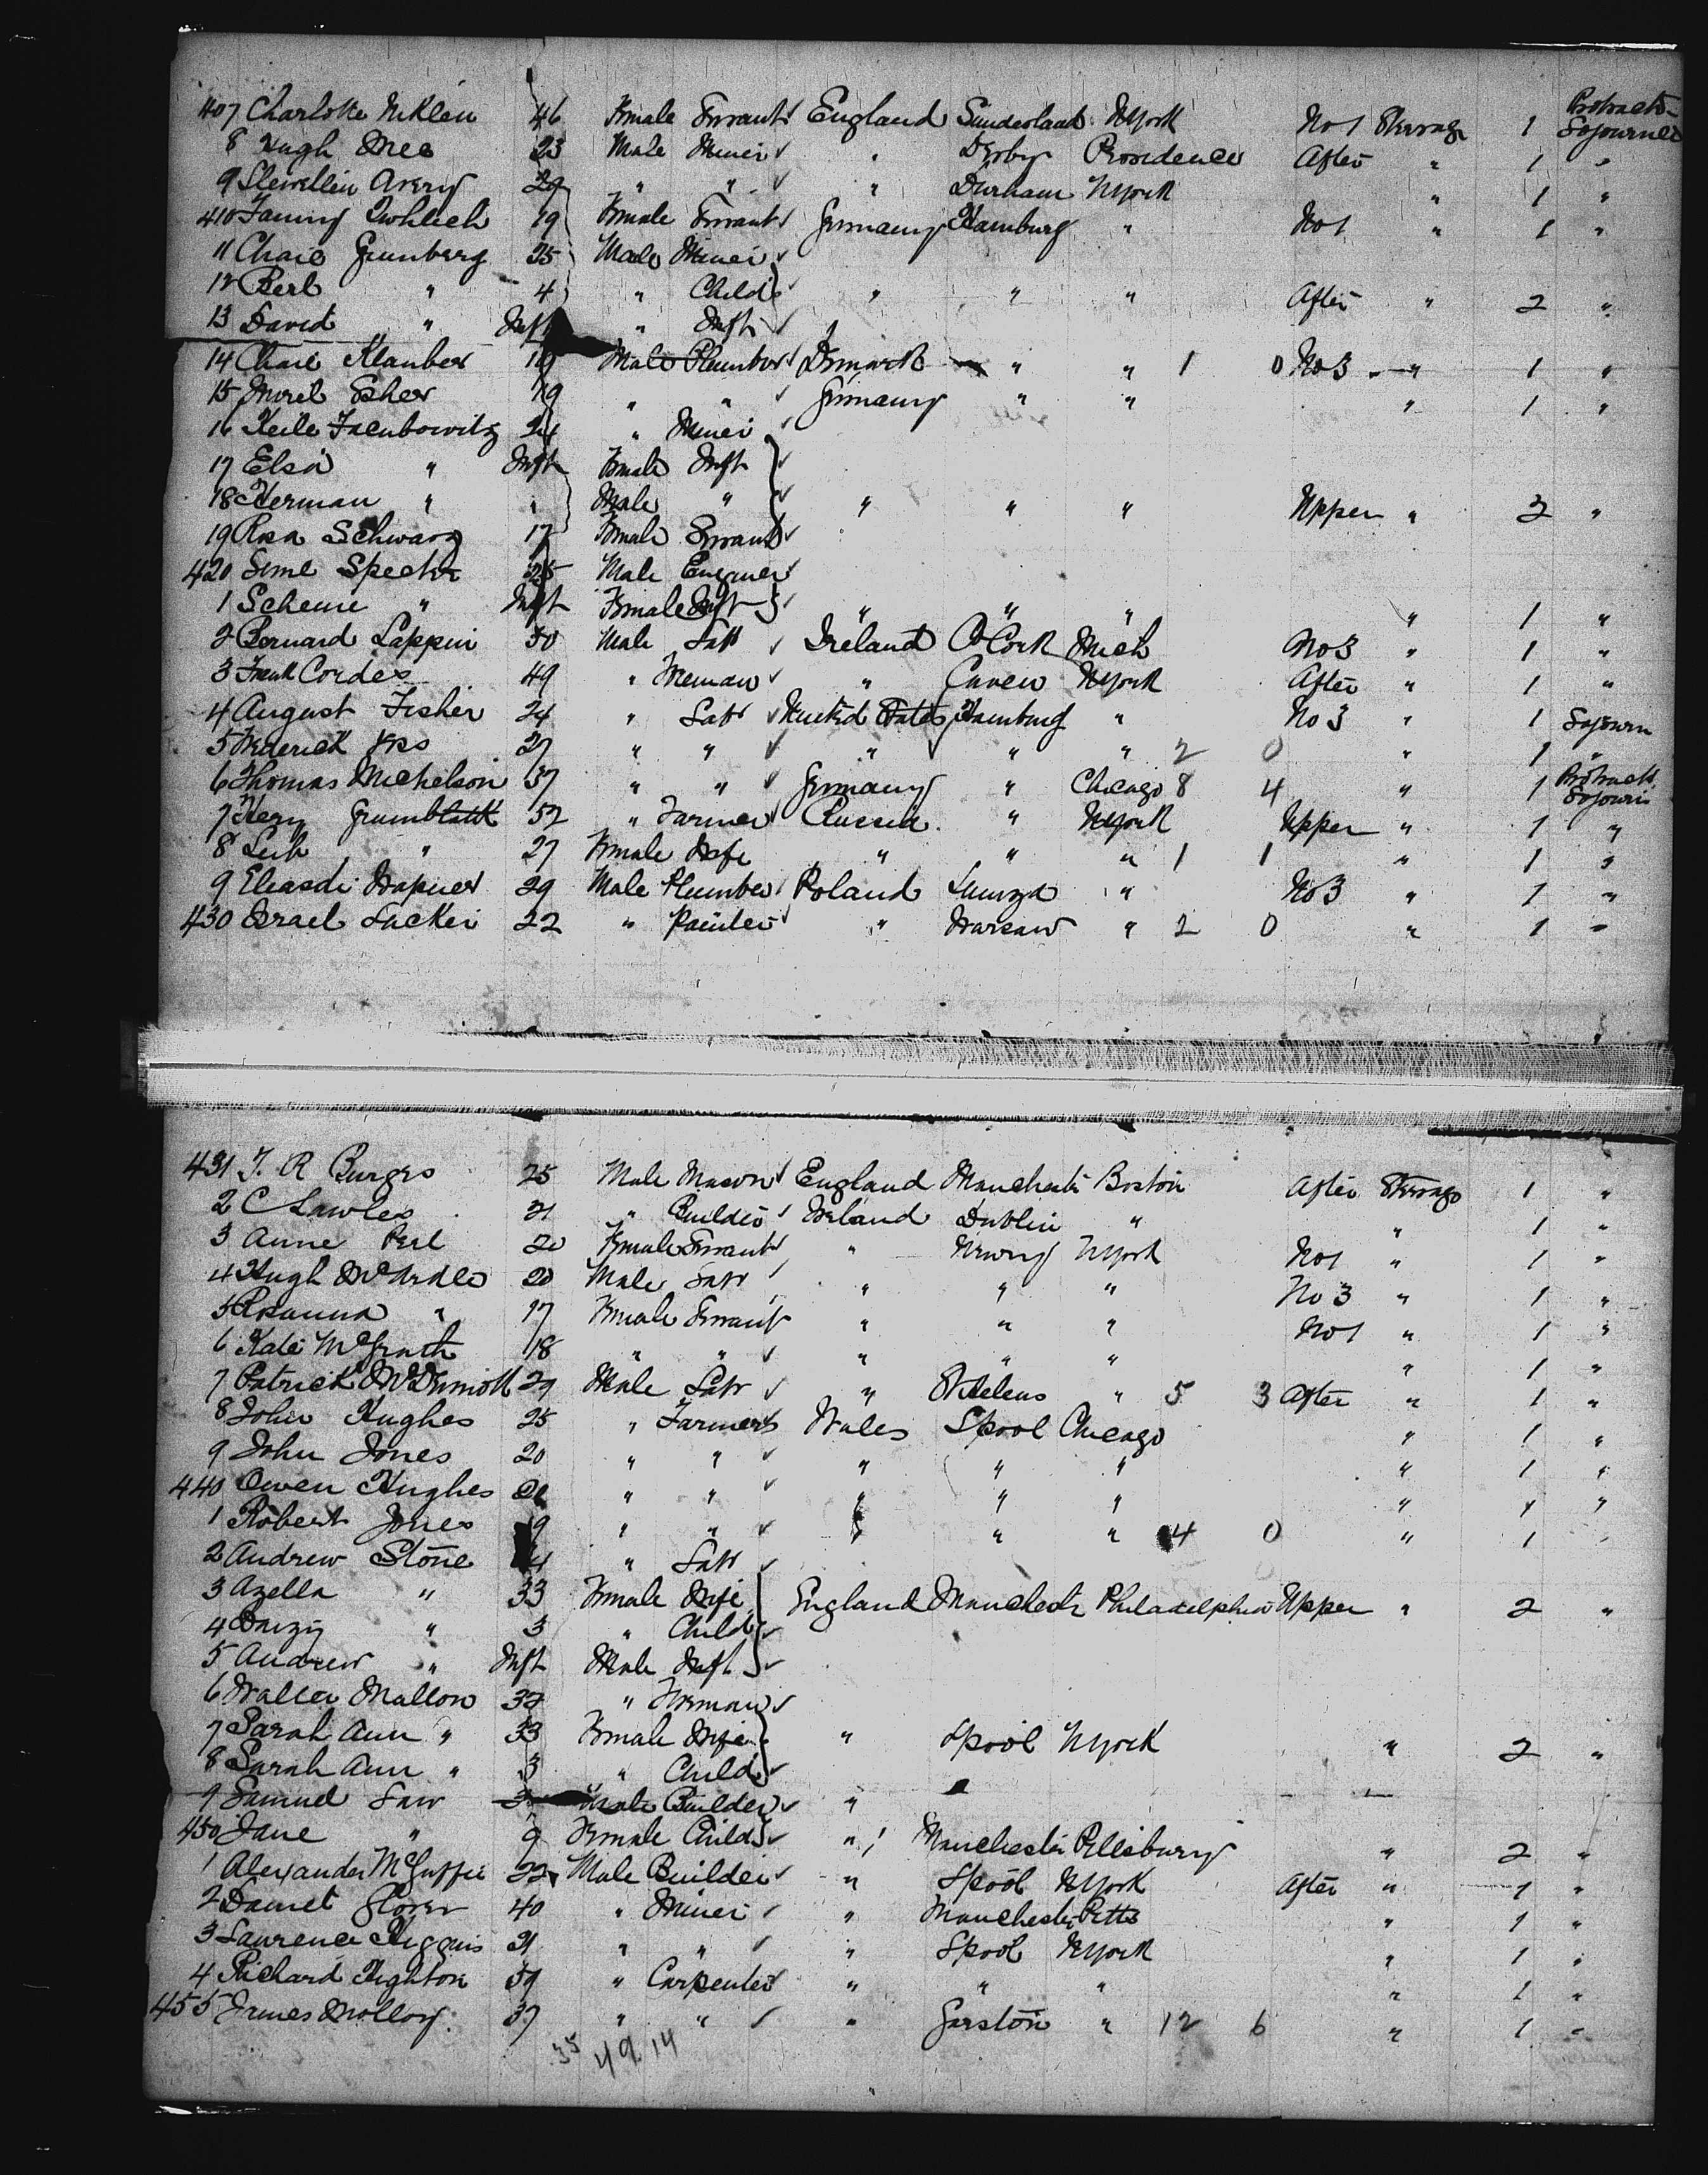 407 Charlotte McKlen 46 Female Servant England Sunderland NYork No 1 Steerage 1 Protracted Sojourned
8 Hugh Mee 23 Male Miner " Derby Providence After " 1 "
9 Llewellin Avery 29 " " " Durham NYork " 1 "
410 Fanny 19 Female Servant Germany Hamburg " No 1 " 1 "
11 Chaie Grunberg 25 Male Miner
12 Berl " 4 " Child " " " After " 2 "
13 David " Inft " Inft
14 Chaie Klauber 19 Male Plumber Denmark " " 1 0 No 3 " 1 "
15 Esher 19 " " Germany " " " 1 "
16 Keile Jacubowitz 24 " Miner
17 Elsa " Inft Female Inft
18 Herman " " Male " " " " Upper " 2 "
19 Rosa Schwarz 17 Female Servant
420 Sime Specter 25 Male Engineer
1 Scheine " Inft Female Inft " " " " 1 "
2 Bernard Lappin 30 Male Labr Ireland Co Cork Mich No 3 " 1 "
3 Frank Cordes 49 " Fireman " Caven NYork After " 1 "
4 August Fisher 24 " Labr United States Hamburg " No 3 " 1 Sojourn
5 Frederick 27 " " " " " 2 0 " 1 "
6 Thomas Michelson 37 " " Germany " Chicago 8 4 " 1 Protract Sojourn
7 Grumblatt 52 " Farmer Russia " NYork Upper " 1 "
8 Leib " 27 Female Wife " " " 1 1 " 1 "
9 Eleasdi Wapner 29 Male Plumber Poland " No 3 " 1 "
430 Israel Sacker 22 " Painter " Warsaw " 2 0 " 1 "
431 J. R Burges 25 Male Mason England Manchester Boston After Steerage 1 "
2 C Lawles 21 " Builder Ireland Dublin " " 1 "
3 Anne Peel 20 Female Servant " Newry NYork No 1 " 1 "
4 Hugh McArdle 20 Male Labr " " " No 3 " 1 "
5 Rosanna " 17 Female Servant " " " No 1 " 1 "
6 Kate McGrath 18 " " " " " " 1 "
7 Patrick McDermott 29 Male Labr " St Helens " 5 3 After " 1 "
8 John Hughes 25 " Farmers Wales Lpool Chicago " 1 "
9 John Jones 20 " " " " " " 1 "
440 Owen Hughes " " " " " " 1 "
1 Robert Jones 19 " " " " " 4 0 " 1 "
2 Andrew Stone " Labr
3 Azella " 33 Female Wife England Manchester Philadelphia Upper " 2 "
4 Daizy " 3 " Child
5 Andrew " Inft Male Inft
6 Walter Mallon 32 " Foreman
7 Sarah Ann " 33 Female Wife " Lpool NYork " 2 "
8 Sarah Ann " 3 " Child
9 Samuel Law Male Builder "
450 Jane " 9 Female Child " Manchester Pittsburg " 2 "
1 Alexander McGuffie 22 Male Builder " Lpool NYork After " 1 "
2 Daniel Glover 40 " Miner " Manchester Pitts " 1 "
3 Lawrence Higgins 21 " " " Lpool NYork " 1 "
4 Richard Highton 59 " Carpenter " " " " 1 "
455 James Molloy 37 " " " Garston " 12 6 " 1 "
35 49 14